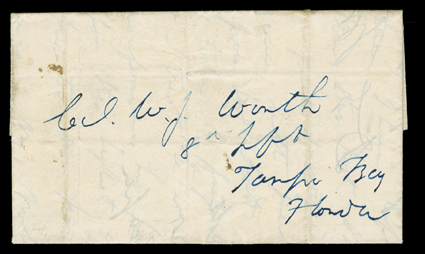 Col. W. J. Worth
8th Inft
Tampa Bay
Florida